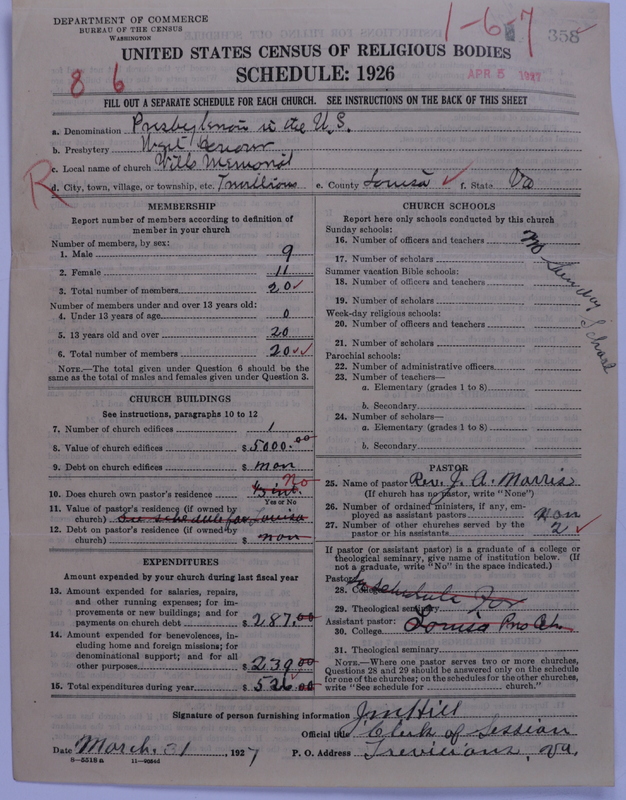 DEPARTMENT OF COMMERCE
BUREAU OF THE CENSUS
WASHINGTON
1-6-7
358
UNITED STATES CENSUS OF RELIGIOUS BODIES
SCHEDULE: 1926
8 6
APR 5 1927
FILL OUT A SEPARATE SCHEDULE FOR EACH CHURCH. SEE INSTRUCTIONS ON THE BACK OF THIS SHEET
a. Denomination Presbyterian in the U.S.
b. Presbytery West Hanover
c. Local name of church Wills Memorial
R
d. City, town, village, or township, etc. e. County Louisa f. State Va
MEMBERSHIP
Report number of members according to definition of member in your church
Number of members, by sex:
1. Male 9
2. Female 11
3. Total number of members 20
Number of members under and over 13 years old:
4. Under 13 years of age 0
5. 13 years old and over 20
6. Total number of members 20
NOTE.—The total given under Question 6 should be the
same as the total of males and females given under Question 3.
CHURCH BUILDINGS
See instructions, paragraphs 10 to 12
7. Number of church edifices 1
8. Value of church edifices $ 5000.00
9. Debt on church edifices $ non
No
10. Does church own pastor's residence
Yes or No
11. Value of pastor's residence (if owned by
church) See schedule for Louisa
12. Debt on pastor's residence (if owned by
church) $ non
EXPENDITURES
Amount expended by your church during last fiscal year
13. Amount expended for salaries, repairs,
and other running expenses; for im-
provements or new buildings; and for
payments on church debt $ 287.00
14. Amount expended for benevolences, in-
cluding home and foreign missions; for
denominational support; and for all
other purposes $ 239.00
15. Total expenditures during year $ 526.00
CHURCH SCHOOLS
Report here only schools conducted by this church
Sunday schools:
16. Number of officers and teachers
No Sunday School
17. Number of scholars
Summer vacation Bible schools:
18. Number of officers and teachers
19. Number of scholars
Week-day religious schools:
20. Number of officers and teachers
21. Number of scholars
Parochial schools:
22. Number of administrative officers
23. Number of teachers—
a. Elementary (grades 1 to 8)
b. Secondary
24. Number of scholars—
a. Elementary (grades 1 to 8)
b. Secondary
PASTOR
25. Name of pastor Rev. J. A. Morris
(If church has no pastor, write "None")
26. Number of ordained ministers, if any, em-
ployed as assistant pastors non
27. Number of other churches served by the
pastor or his assistants 2
If pastor (or assistant pastor) is a graduate of a college or
theological seminary, give name of institution below. (If
not a graduate, write "No" in the space indicated.)
Pastor:
28. College schedule For
29. Theological seminary
Assistant pastor:
30. College Louisa Pres Ch.
31. Theological seminary
NOTE.—Where one pastor serves two or more churches,
Questions 28 and 29 should be answered only on the schedule
for one of the churches; on the schedules for the other churches,
write "See schedule for church."
Signature of person furnishing information J M Hill
Official title Clerk of Session
Date March 31 1927 P. O. Address Trevilians, Va.
8—5518 a